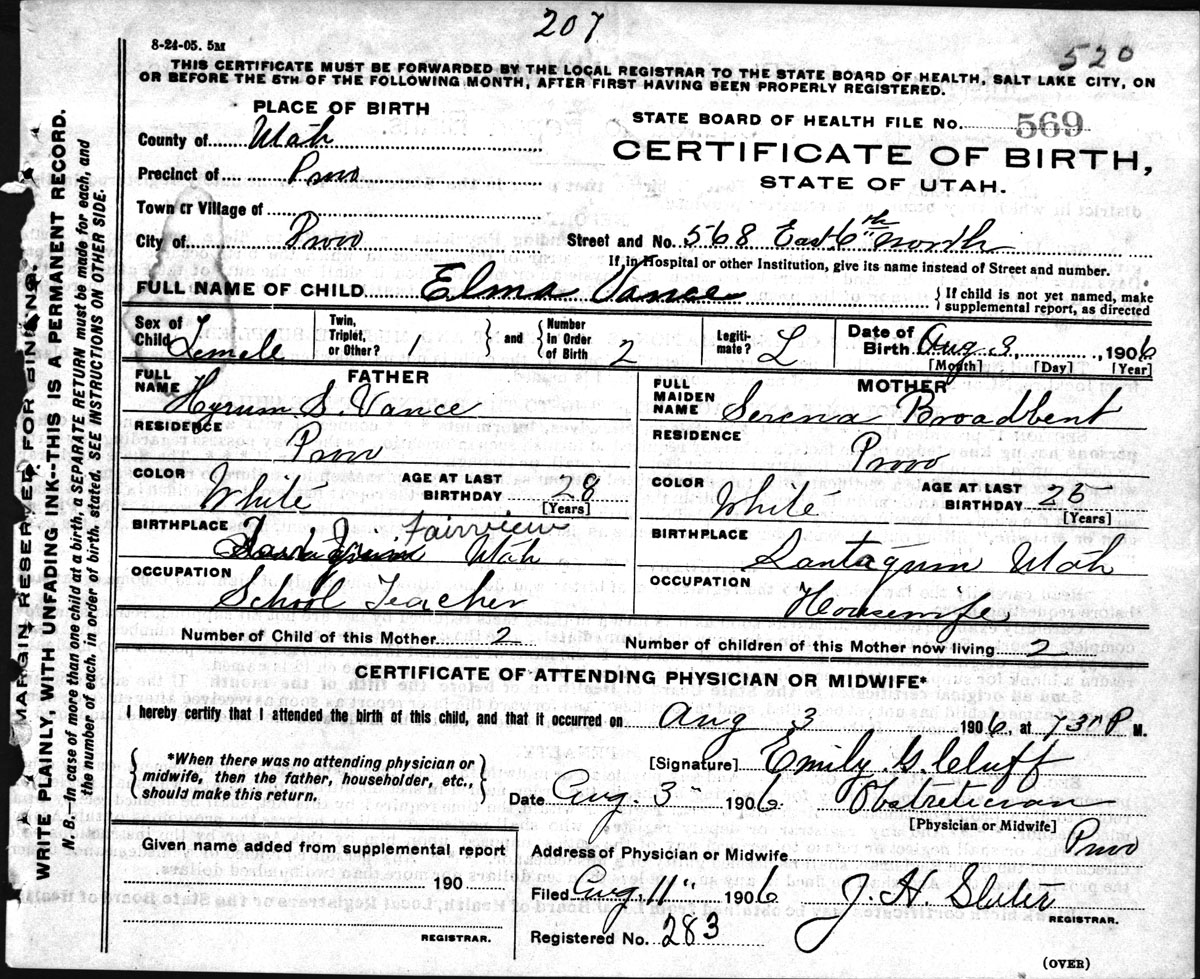 207
520
8-24-05. 5M
THIS CERTIFICATE MUST BE FORWARDED BY THE LOCAL REGISTRAR TO THE STATE BOARD OF HEALTH, SALT LAKE CITY, ON
OR BEFORE THE 5TH OF THE FOLLOWING MONTH, AFTER FIRST HAVING BEEN PROPERLY REGISTERED.
MARGIN RESERVED FOR BINDING.
WRITE PLAINLY, WITH UNFADING INK--THIS IS A PERMANENT RECORD.
N.B.--In case of more than one child at a birth, a SEPARATE RETURN must be made for each, and
the number of each, in order of birth, stated. SEE INSTRUCTIONS ON OTHER SIDE.
PLACE OF BIRTH
County of Utah
Precinct of Provo
Town or Village of
City of Provo
STATE BOARD OF HEALTH FILE No. 569
CERTIFICATE OF BIRTH,
STATE OF UTAH.
Street and No. 568 East 6th North
If in Hospital or other Institution, give its name instead of Street and number.
FULL NAME OF CHILD Elma Vance
{ If child is not yet named, make
supplemental report, as directed
Sex of Child Female
Twin, Triplet, or Other? 1 } and { Number In Order of Birth 2
Legiti- mate? L
Date of Birth Aug 3, 1906
[Month] [Day] [Year]
FATHER
FULL NAME Hyrum S. Vance
RESIDENCE Provo
COLOR White
AGE AT LAST BIRTHDAY 28
[Years]
BIRTHPLACE Fairview
Utah
OCCUPATION School Teacher
MOTHER
FULL MAIDEN NAME Serena Broadbent
RESIDENCE Provo
COLOR White
AGE AT LAST BIRTHDAY 25
[Years]
BIRTHPLACE Santaquin Utah
OCCUPATION Housewife
Number of Child of this Mother 2
Number of children of this Mother now living 2
CERTIFICATE OF ATTENDING PHYSICIAN OR MIDWIFE*
I hereby certify that I attended the birth of this child, and that it occurred on Aug 3 1906, at P M.
{ *When there was no attending physician or
midwife, then the father, householder, etc.,
should make this return. }
[Signature] Emily G Cluff
Date Aug. 3" 1906 Obstretician
[Physician or Midwife]
Address of Physician or Midwife Provo
Given name added from supplemental report
190
REGISTRAR.
Filed Aug, 11" 1906 J. H. Slater
REGISTRAR.
Registered No. 283
(OVER)